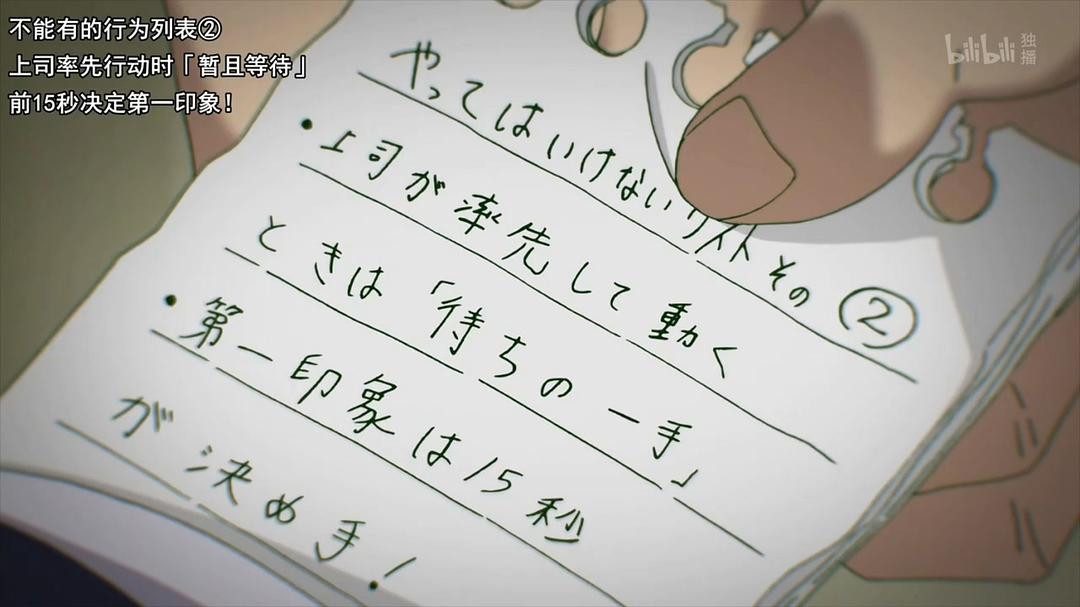 不能有的行为列表②
上司率先行动时「暂且等待」
前15秒决定第一印象!
bilibili 独播
やってはいけないリスト その②
・上司が率先して動く
ときは「待ちの一手」
・第一印象は15秒
が決め手!